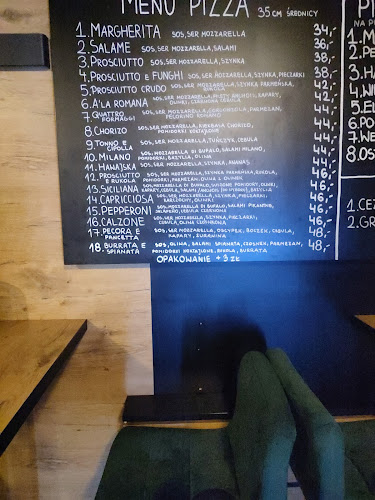 MENU PIZZA 35 CM ŚREDNICY
1. MARGHERITA SOS, SER MOZZARELLA 34,-
2. SALAME SOS, SER MOZZARELLA, SALAMI 38,-
3. PROSCIUTTO SOS, SER MOZZARELLA, SZYNKA
4. PROSCIUTTO e FUNGHI SOS, SER MOZZARELLA, SZYNKA, PIECZARKI
5. PROSCIUTTO CRUDO SOS, SER MOZZARELLA, SZYNKA PARMEŃSKA, RUKOLA
6. A'LA ROMANA SOS, SER MOZZARELLA, KAPARY, OLIWKI, CZERWONA CEBULA
7. QUATTRO FORMAGGI SOS, SER MOZZARELLA, GORGONZOLA, PARMEZAN, PECORINO ROMANO
8. CHORIZO SOS, SER MOZZARELLA, KIEŁBASA CHORIZO, POMIDORKI KOKTAJLOWE 44,-
9. TONNO e CIPOLLA SOS, SER MOZZARELLA, TUŃCZYK, CEBULA
10. MILANO SOS, MOZZARELLA DI BUFALO, SALAMI MILANO, POMIDORKI, BAZYLIA, OLIWA 44,-
11. HAWAJSKA SOS, SER MOZZARELLA, SZYNKA, ANANAS 44,-
12. PROSCIUTTO e RUKOLA SOS, SER MOZZARELLA, SZYNKA PARMEŃSKA, RUKOLA, POMIDORKI, PARMEZAN, OLIWA Z OLIWEK 46,-
13. SICILIANA SOS, MOZZARELLA DI BUFALO, SUSZONE POMIDORY, OLIWKI, BAZYLIA 46,-
14. CAPRICCIOSA SOS, SER MOZZARELLA, SZYNKA, PIECZARKI, KARCZOCHY, OLIWKI 46,-
15. PEPPERONI SOS, MOZZARELLA DI BUFALO, SALAMI PIKANTNA, JALAPEÑO, CEBULA CZERWONA 46,-
16. CALZONE SOS, SER MOZZARELLA, SZYNKA, PIECZARKI, CEBULA CZERWONA 46,-
17. PECORA e PANCETTA SOS, SER MOZZARELLA, OSCYPEK, BOCZEK, CEBULA, KAPARY, ŻURAWINA 48,-
18. BURRATA e SPIANATA SOS, OLIWA, SALAMI SPIANATA, CZOSNEK, PARMEZAN, POMIDORKI KOKTAJLOWE, RUKOLA, BURRATA 48,-
OPAKOWANIE + 3 ZŁ
1.
2.
3.
4.
5.
6.
7.
8.
1. CE
2. GR